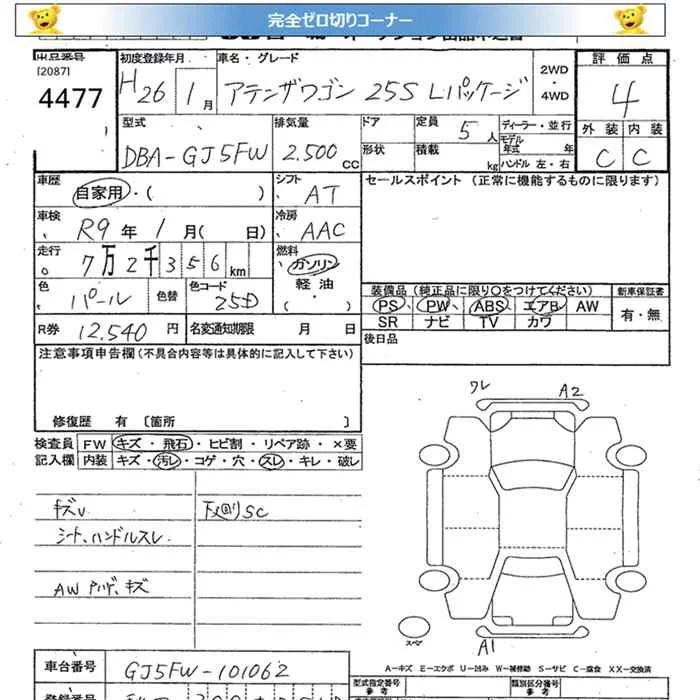 完全ゼロ切りコーナー
出品番号 初度登録年月 車名・グレード 2WD・4WD 評価点
[2087]
4477 H26 1月 アテンザワゴン 25S Lパッケージ 4
型式 排気量 ドア 定員 5人 ディーラー・並行 外装 内装
モデル年式 年
DBA-GJ5FW 2,500cc 形状 積載 kg ハンドル 左・右 C C
車歴 自家用・( ) シフト AT セールスポイント (正常に機能するものに限ります)
車検 R9年 1月( 日) 冷房 AAC
走行 7万2千356km 燃料 ガソリン・軽油・( )
色 パール 色替 色コード 25D 装備品(純正品に限り○をつけてください) 新車保証書
PS PW ABS エアB AW 有・無
R券 12,540円 名変通知期限 月 日 SR ナビ TV カワ
注意事項申告欄(不具合内容等は具体的に記入して下さい) 後日品
ワレ A2
修復歴 有 〔箇所 〕
検査員 FW キズ・飛石・ヒビ割・リペア跡・×要
記入欄 内装 キズ・汚レ・コゲ・穴・スレ・キレ・破レ
下回りSC
シート、ハンドルスレ
AW キズ
スペア A1
A-キズ E-エクボ U-凹み W-補修跡 S-サビ C-腐食 XX-交換済
車台番号 GJ5FW-101062
型式指定番号 参考 類別区分番号 参考
登録番号